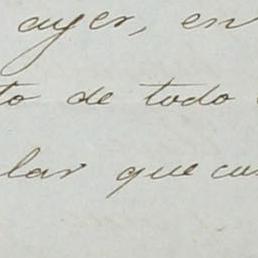 ayer, en
to de todo
lar que cu